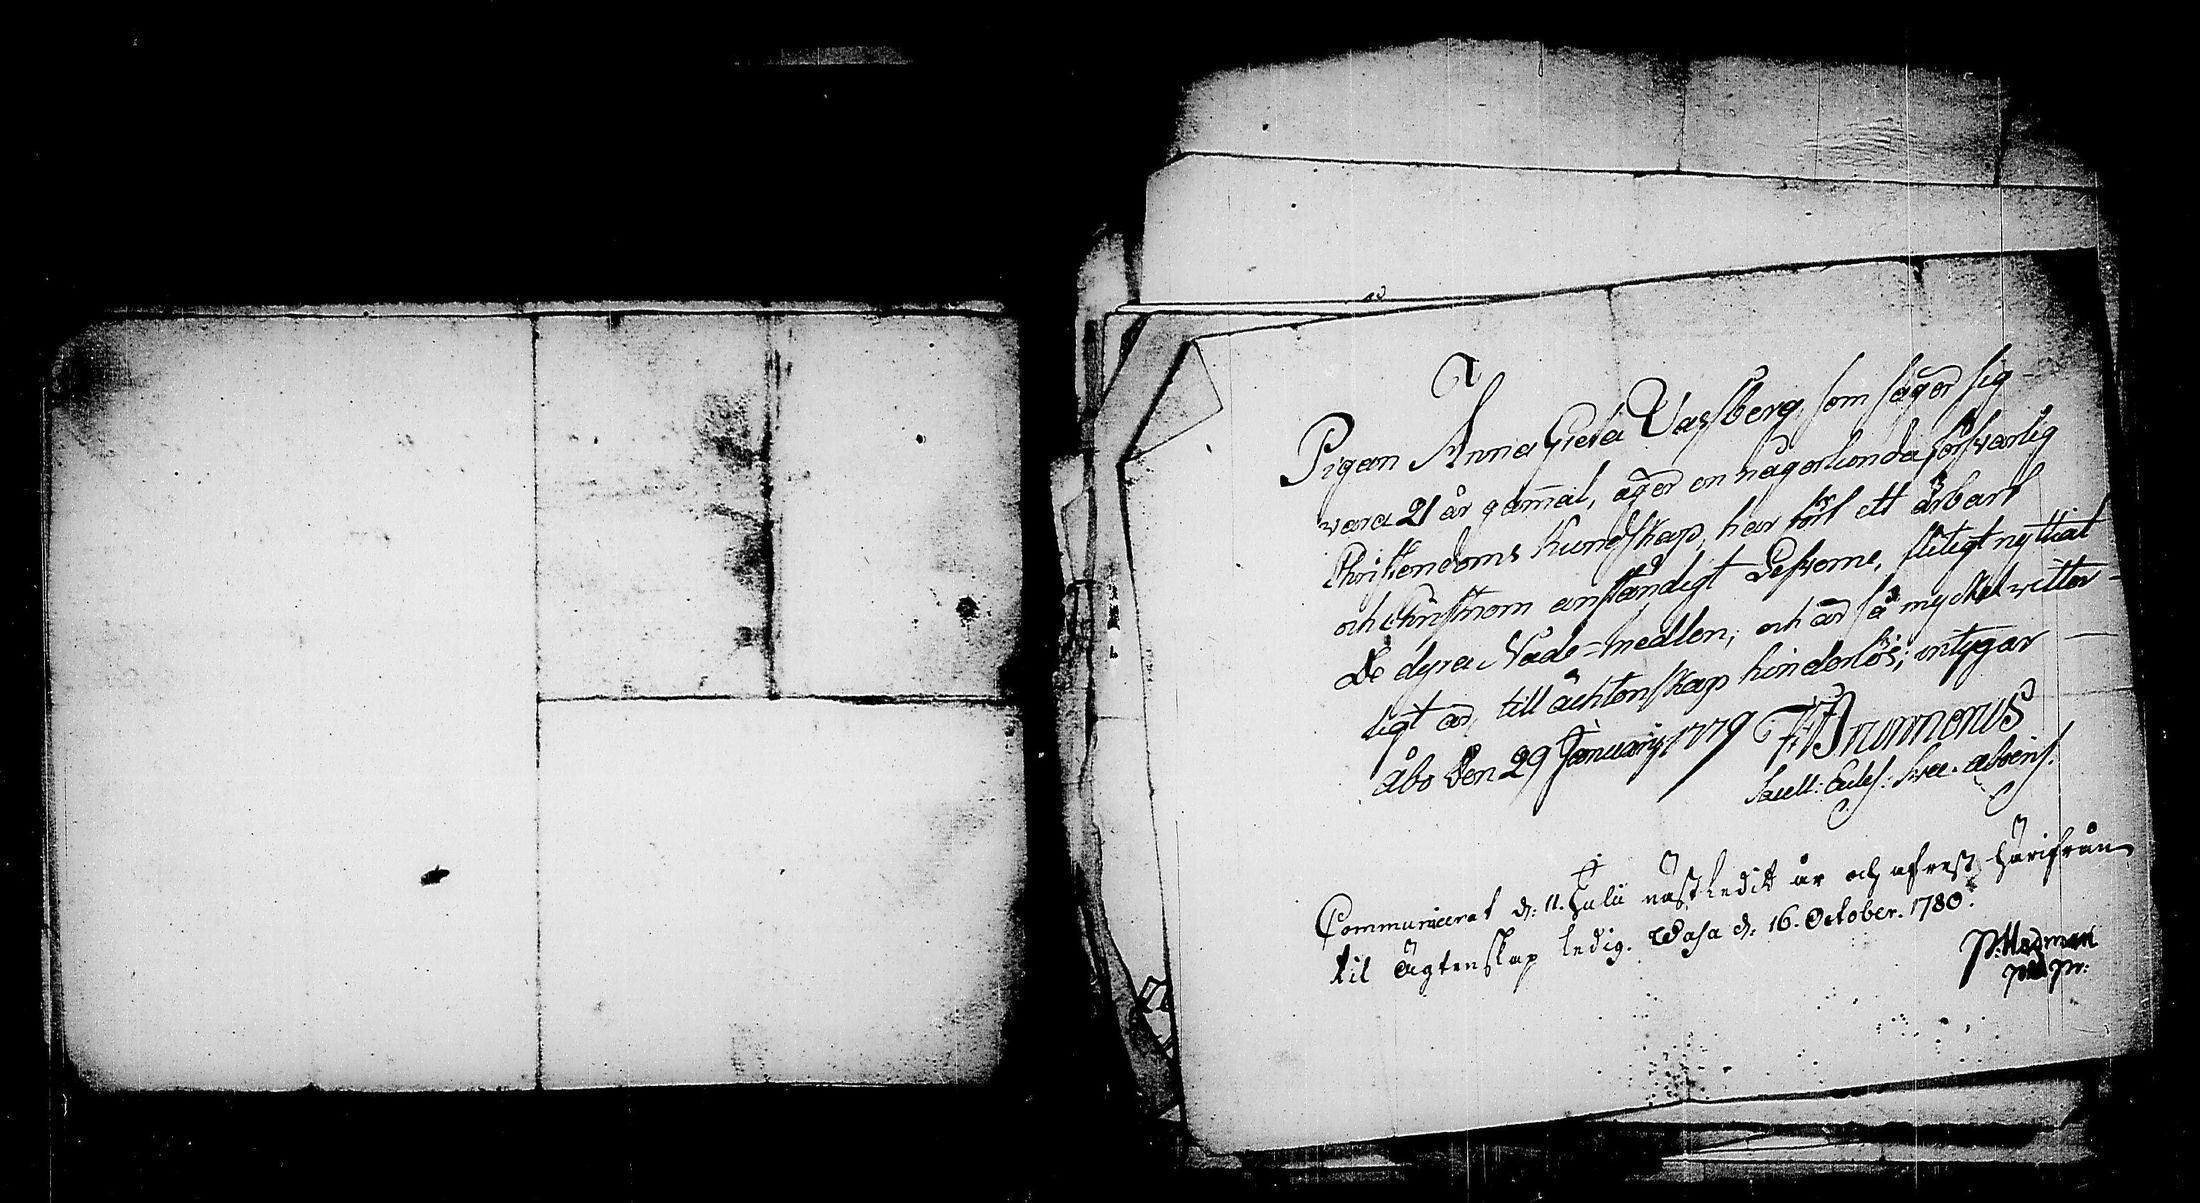 Pigan Anna Greta Vassberg, som säger sig
vara 21 år gammal, äger en någorlunda försvarlig
Christendoms Kundskap, har fört ett ärbart
och Christnom anständigt Lefverne, flitigt nyttiat
De dyra Nåde-medlen; och är så mycket vitter-
ligt är, till ächtenskap hinderlös; intygar
Åbo den 29 January 1779
Sacell: Eccles: Svec. aboens.
Communicerat d: 11. Julii nästledit år och afrest härifrån
til Ägtenskap ledig. Wasa d: 16. October. 1780.
P: Hedman